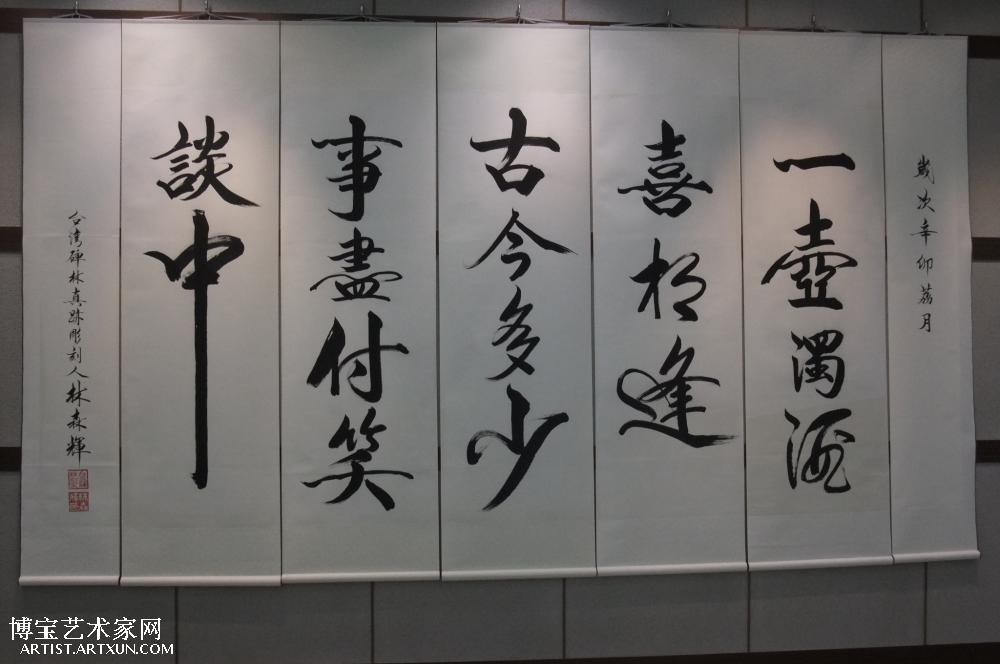 歲次辛卯荔月
一壺濁酒
喜相逢
古今多少
事盡付笑
談中
台灣碑林真跡彫刻人林森輝
博宝艺术家网
ARTIST.ARTXUN.COM